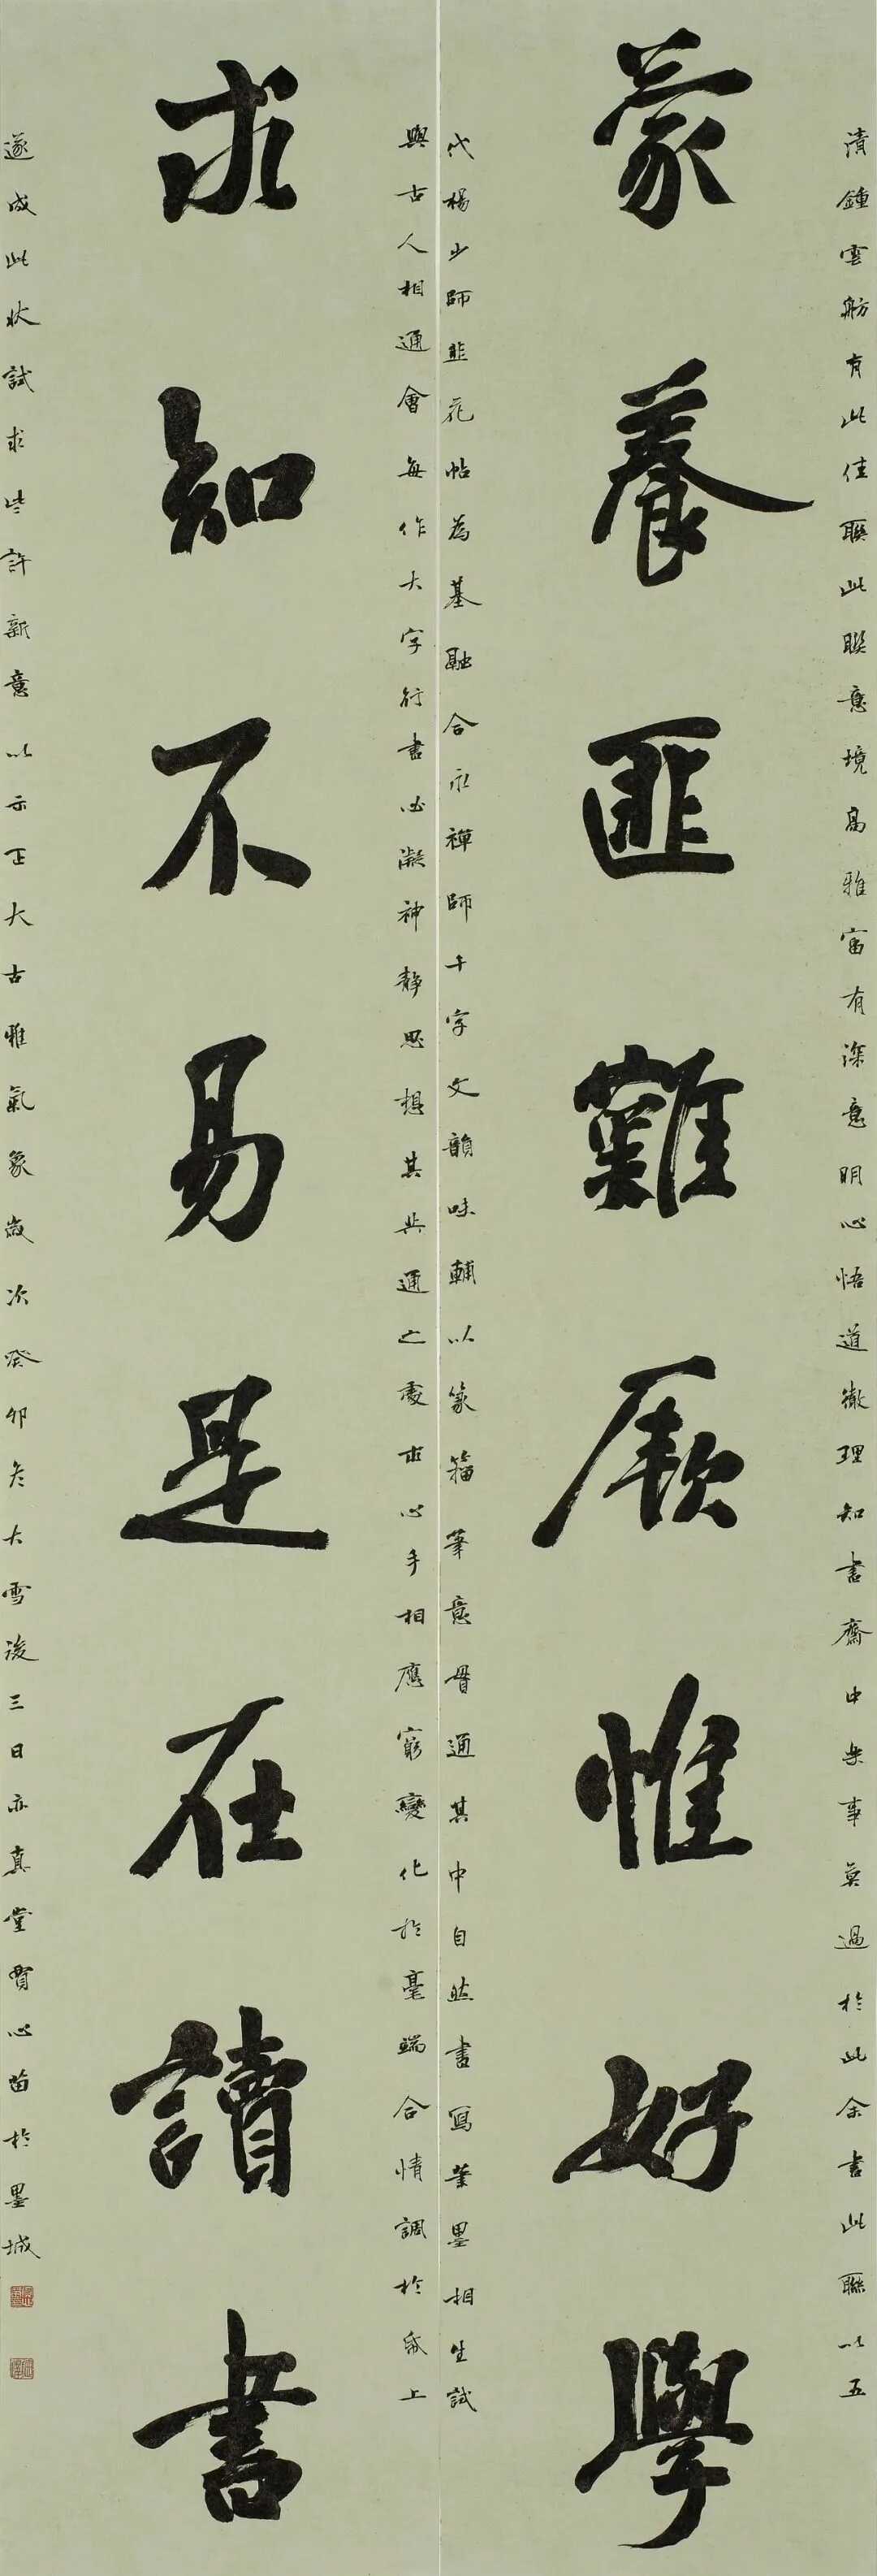 清鍾雲舫有此佳聯此聯意境高雅富有深意明心悟道徹理知書齋中樂事莫過於此余書此聯以五
蒙養匪難厥惟好學
代楊少師韭花帖為基融合永禪師千字文韻味輔以篆籀筆意冒通其中自然書寫筆墨相生試
與古人相通會每作大字行書必凝神靜思想其共通之處求心手相應窮變化於毫端合情調於紙上
求知不易是在讀書
遂成此狀試求些許新意以示正大古雅氣象歲次癸卯冬大雪後三日亦真堂賈心苗於墨城